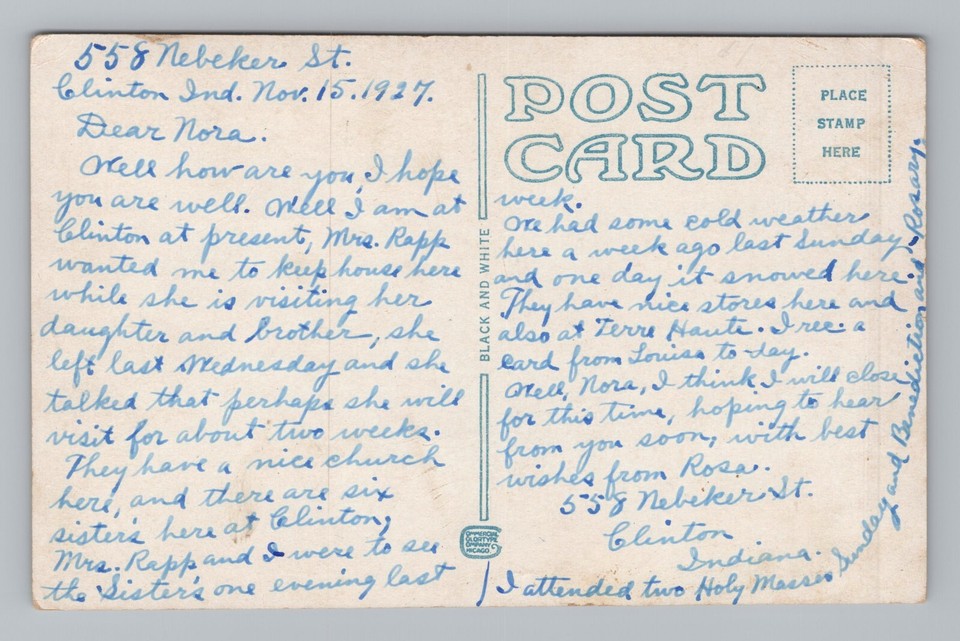 558 Nebeker St.
Clinton Ind. Nov. 15. 1927.
Dear Nora.
Well how are you, I hope
you are well. Well I am at
Clinton at present, Mrs. Rapp
wanted me to keep house here
while she is visiting her
daughter and brother, she
left last Wednesday and she
talked that perhaps she will
visit for about two weeks.
They have a nice church
here, and there are six
sister's here at Clinton,
Mrs. Rapp and I were to see
the Sister's one evening last
week.
We had some cold weather
here a week ago last Sunday
and one day it snowed here.
They have nice stores here and
also at Terre Haute. I rec. a
card from Louisa to-day.
Well, Nora, I think I will close
for this time, hoping to hear
from you soon, with best
wishes from Rosa.
558 Nebeker St.
Clinton
Indiana.
I attended two Holy Masses Sunday and Benediction and Rosary.
POST
CARD
PLACE
STAMP
HERE
BLACK AND WHITE
COMMERCIAL
COLORTYPE
COMPANY
CHICAGO